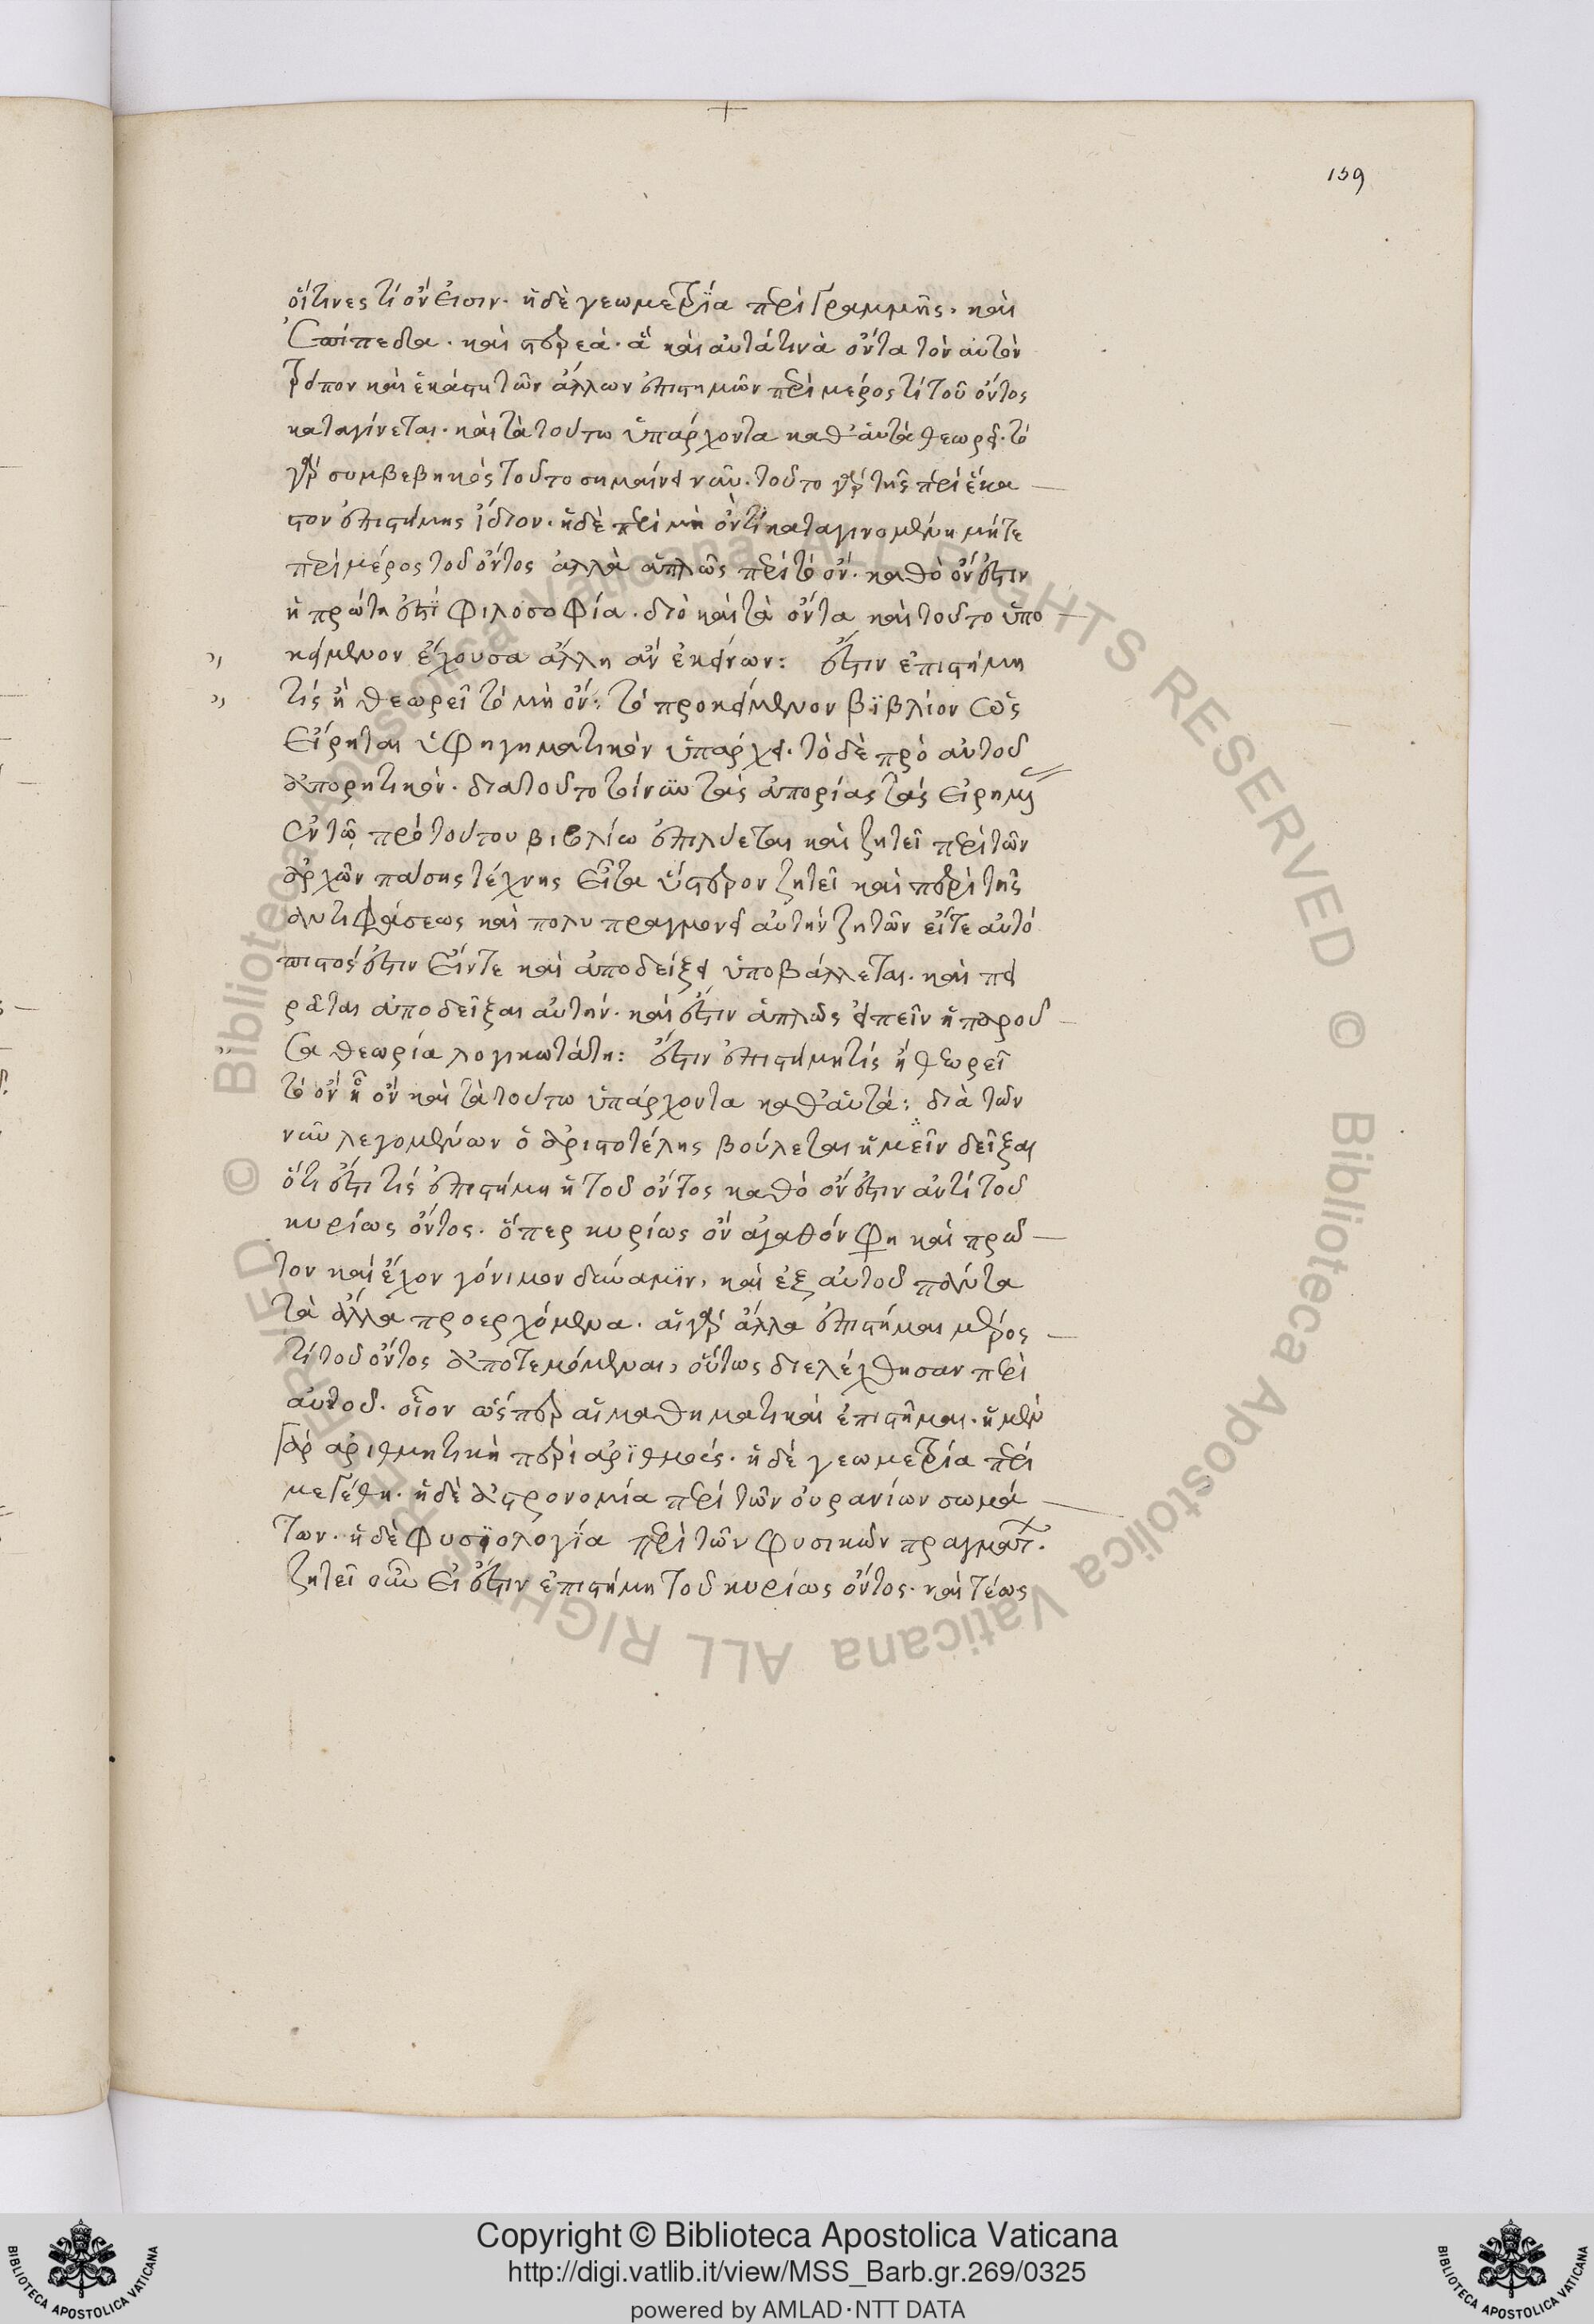 159
οἵτινες τὶ ὄν εἰσιν. ἡ δὲ γεωμετρία περὶ γραμμῆς, καὶ
ἐπίπεδα. καὶ στερεὰ. ἃ καὶ αὐτά τινὰ ὄντα τὸν αὐτὸν
τρόπον καὶ ἑκάστη τῶν ἄλλων ἐπιστημῶν περὶ μέρος τὶ τοῦ ὄντος
καταγίνεται. καὶ τὰ τούτω ὑπάρχοντα καθ' αὑτὰ θεωρεῖ. τὸ
γὰρ συμβεβηκὸς τοῦτο σημαίνει νῦν. τοῦτο γὰρ τῆς περὶ ἕκα
στον ἐπιστήμης ἴδιον. ἡ δὲ περὶ μὴ ὄντι καταγινομένη μήτε
περὶ μέρος τοῦ ὄντος ἀλλὰ ἁπλῶς περὶ τὸ ὄν. καθὸ ὄν ἐστιν
ἡ πρώτη ἐστὶ φιλοσοφία. διὸ καὶ τὰ ὄντα καὶ τοῦτο ὑπο
κείμενον ἔχουσα ἄλλη ἂν ἐκείνων: ἔστιν ἐπιστήμη
τίς ἣ θεωρεῖ τὸ μὴ ὄν: τὸ προκείμενον βϊβλίον ὡς
εἴρηται ὑφηγηματικὸν ὑπάρχει. τὸ δὲ πρὸ αὐτοῦ
ἀπορητικόν. διατοῦτο τίνυν τὰς ἀπορίας τὰς εἰρημ
ἐν τῷ πρὸ τούτου βιβλίω ἐπιλύεται καὶ ζητεῖ περὶ τῶν
ἀρχῶν πάσης τέχνης εἶτα ὕστερον ζητεῖ καὶ περὶ τῆς
ἀντιφάσεως καὶ πολυπραγμονεῖ αὐτὴν ζητῶν εἴτε αὐτό
πιστός ἐστιν εἴντε καὶ ἀποδείξει ὑποβάλλεται. καὶ πει
ρᾶται ἀποδεῖξαι αὐτήν. καὶ ἔστιν ἁπλῶς εἰπεῖν ἡ παροῦ
σα θεωρία λογικωτάτη: ἔστιν ἐπιστήμη τίς ἣ θεωρεῖ
τὸ ὂν ἧ ὂν καὶ τὰ τούτω ὑπάρχοντα καθ' αὑτά: διὰ τῶν
νῦν λεγομένων ὁ ἀριστοτέλης βούλεται ἡμεῖν δεῖξαι
ὅτι ἔστι τίς ἐπιστήμη ἡ τοῦ ὄντος καθὸ ὄν ἐστιν ἀντὶ τοῦ
κυρίως ὄντος. ὅπερ κυρίως ὂν ἀγαθόν φη καὶ πρῶ
τον καὶ ἔχον γόνιμον δύναμϊν, καὶ ἐξ αὐτοῦ πάντα
τὰ ἄλλα προερχόμενα. αἱ γὰρ ἄλλα ἐπιστήμαι μέρος
τὶ τοῦ ὄντος ἀποτεμόμεναι, οὕτως διελέχθησαν περὶ
αὐτοῦ. οἷον ὥσπερ αἱ μαθηματικαὶ ἐπιστῆμαι. ἡ μὲν
γὰρ ἀριθμητικὴ περὶ ἀρϊθμούς. ἡ δὲ γεωμετρία περὶ
μεγέθη. ἡ δὲ ἀστρονομία περὶ τῶν οὐρανίων σωμά
των. ἡ δὲ φυσϊολογία περὶ τῶν φυσικῶν πραγμάτ.
ζητεῖ οὖν εἰ ἔστιν ἐπιστήμη τοῦ κυρίως ὄντος. καὶ τέως
© Biblioteca Apostolica Vaticana ALL RIGHTS RESERVED © Biblioteca Apostolica Vaticana ALL RIGHTS RESERVED
Copyright © Biblioteca Apostolica Vaticana
http://digi.vatlib.it/view/MSS_Barb.gr.269/0325
powered by AMLAD·NTT DATA
BIBLIOTECA APOSTOLICA VATICANA
BIBLIOTECA APOSTOLICA VATICANA